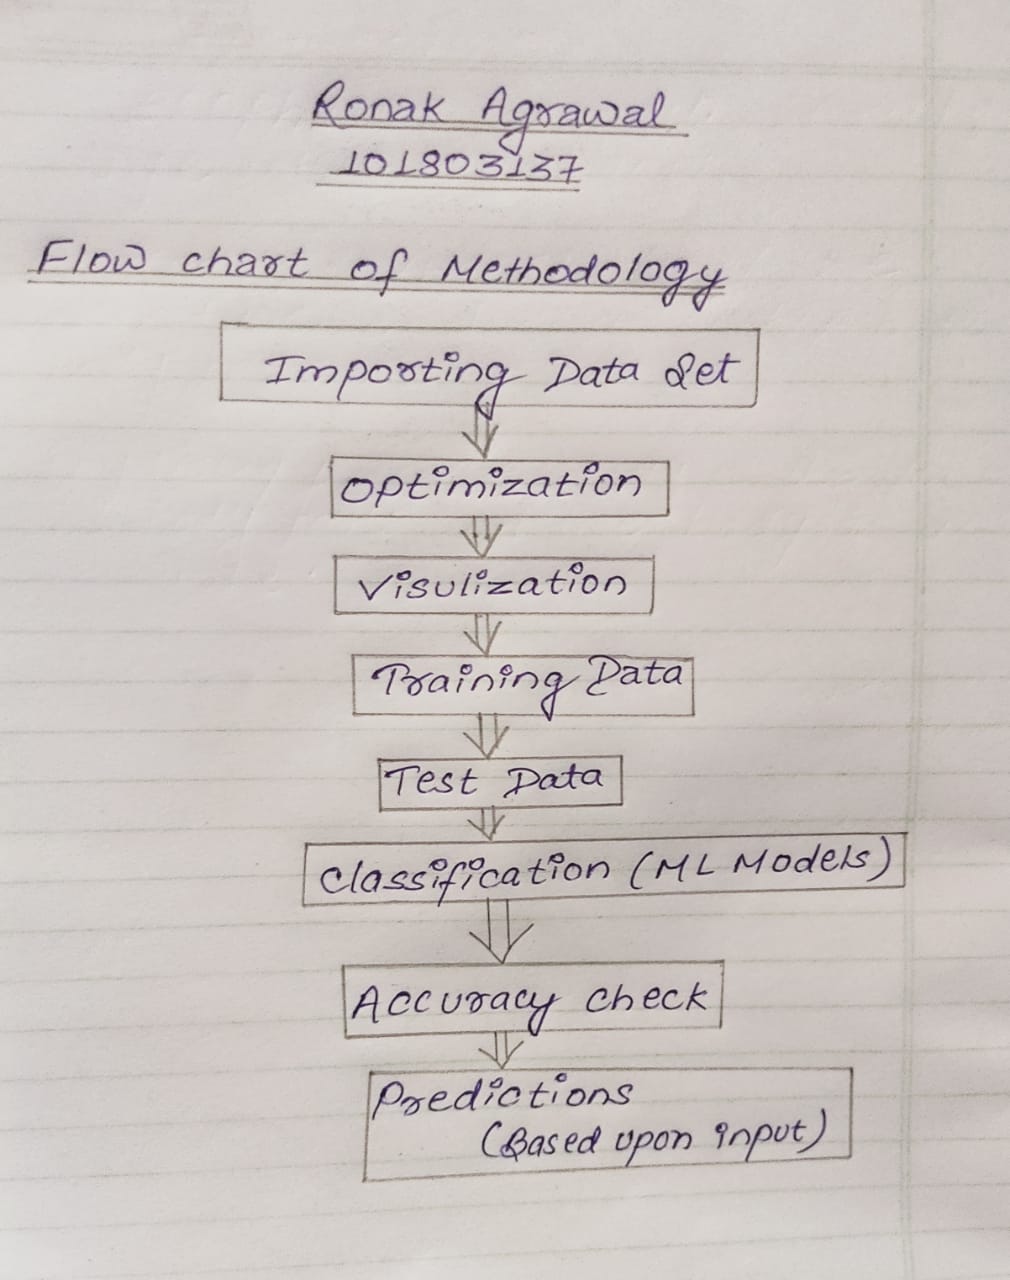 Ronak Agrawal
101803137
Flow chart of Methodology
Importing Data Set
Optimization
Visulization
Training Data
Test Data
Classification (ML Models)
Accuracy check
Predictions
(Based upon input)